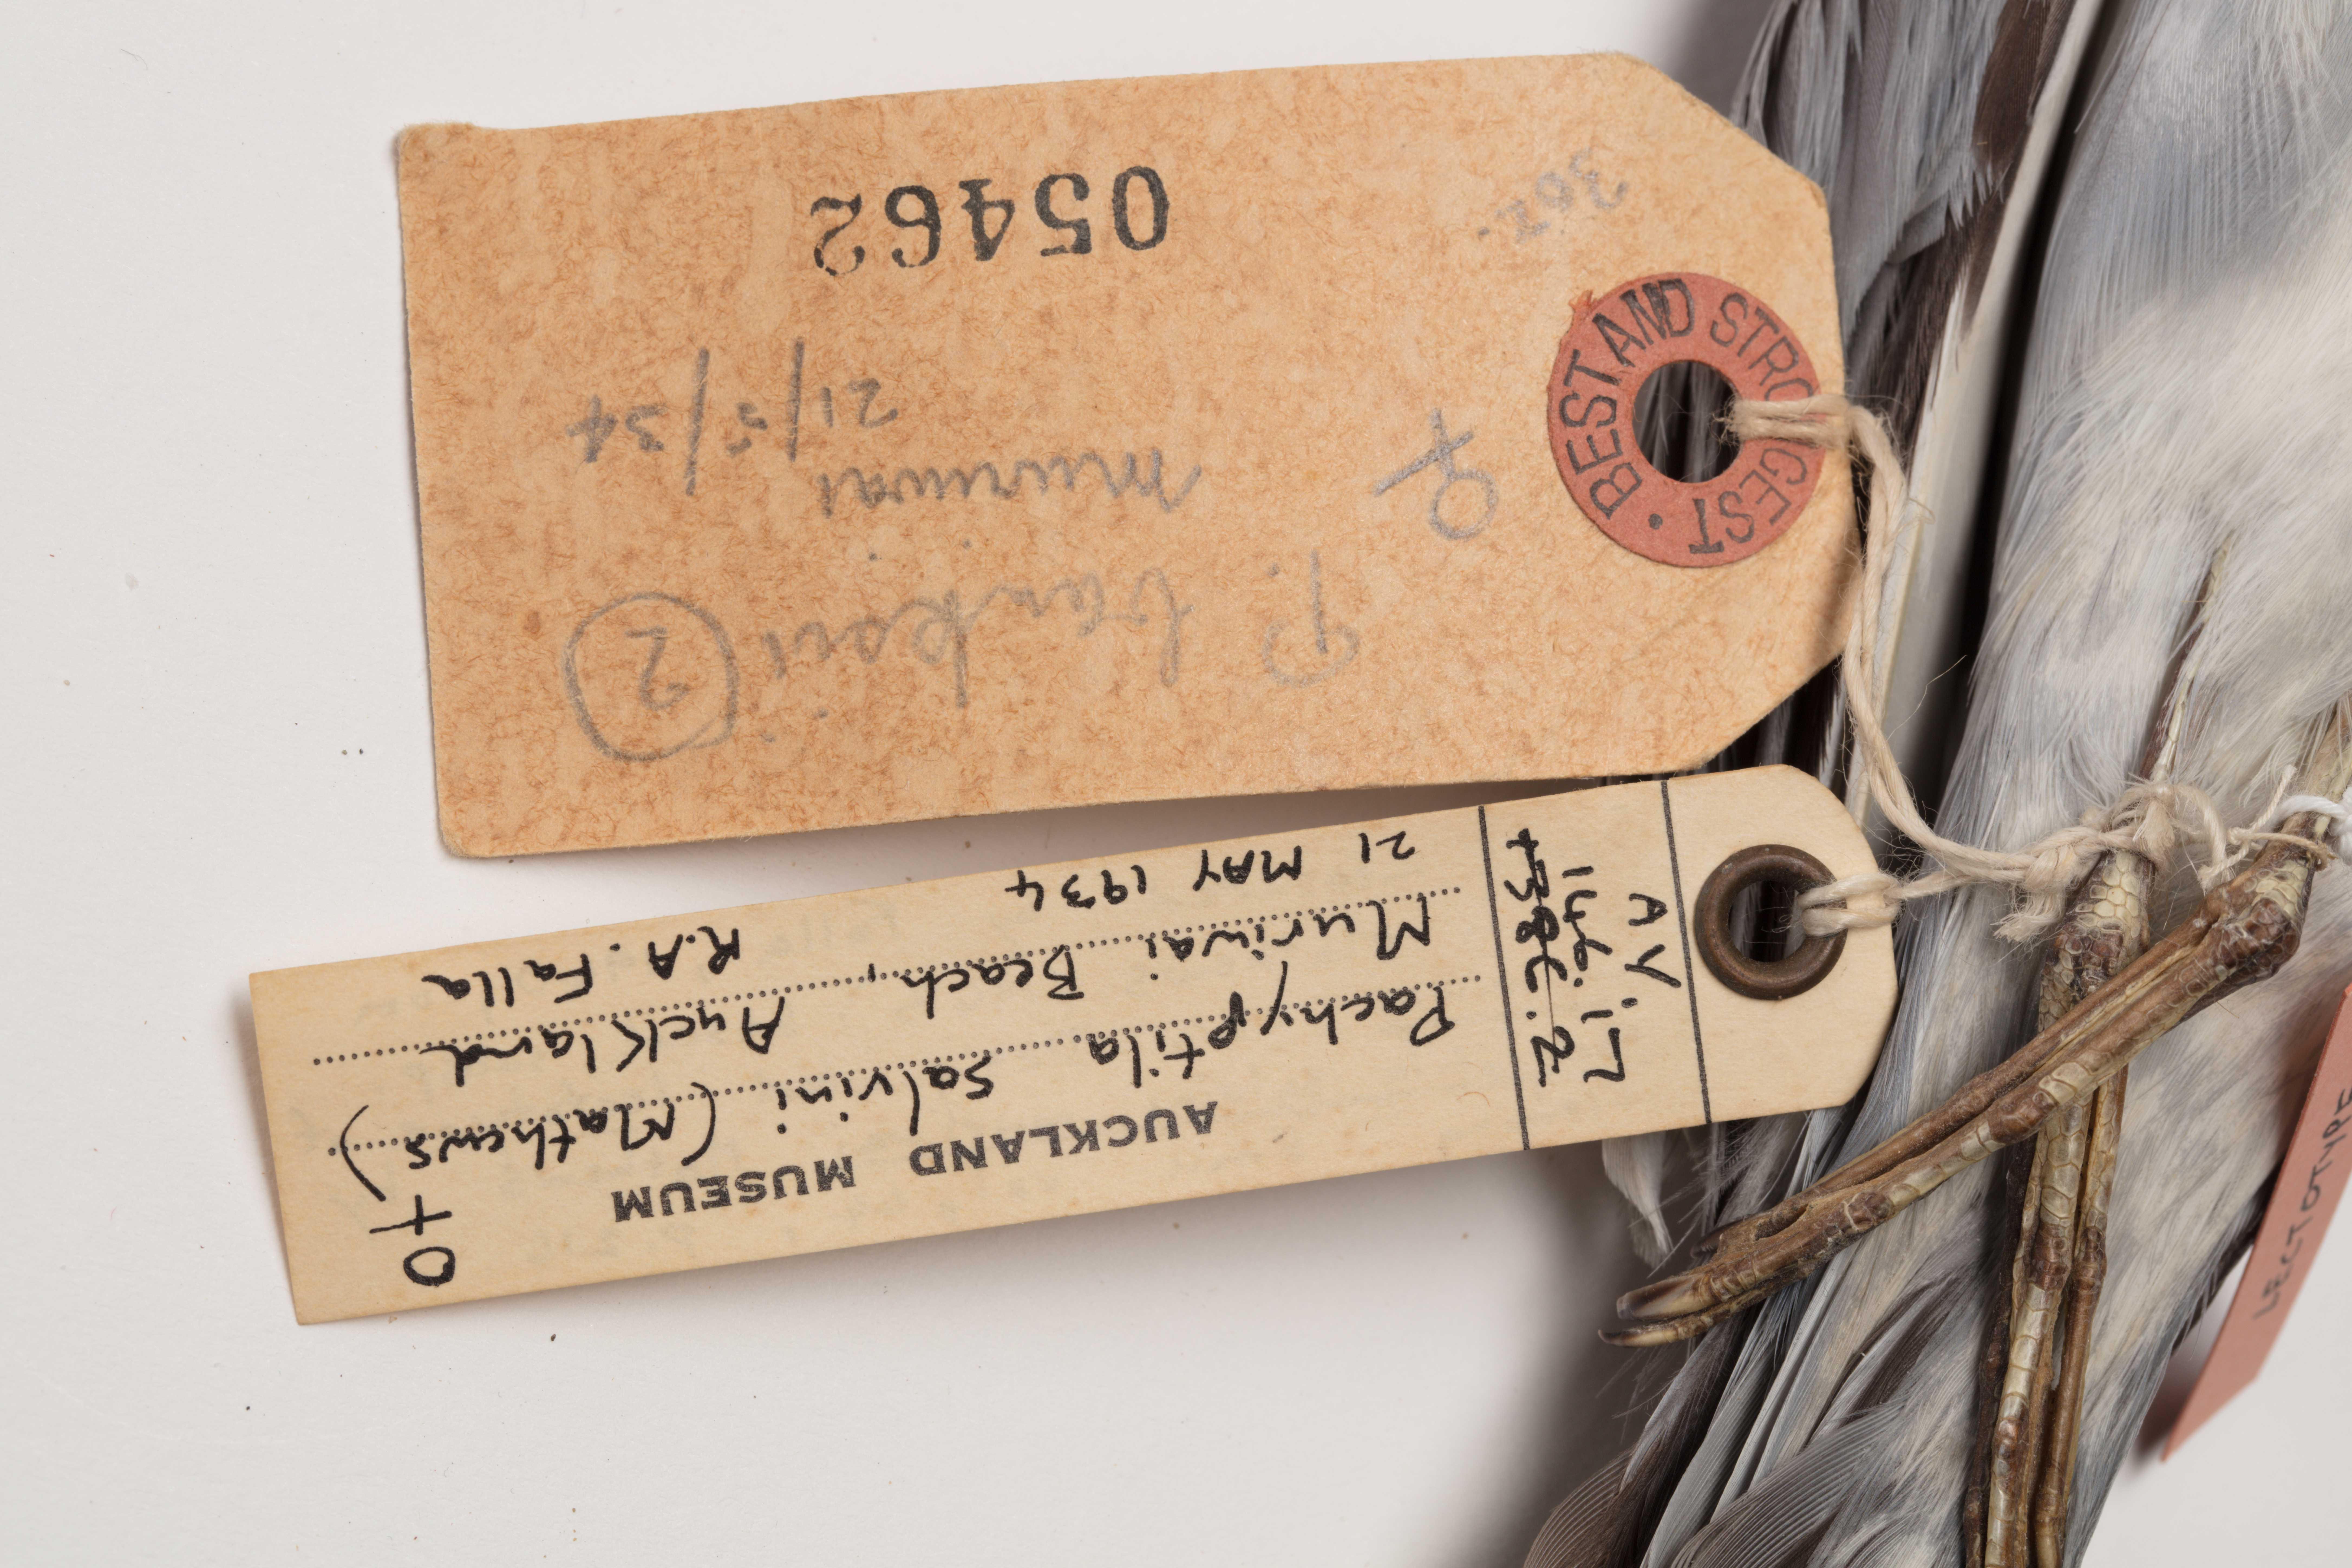 AUCKLAND MUSEUM ♀
Pachyptila salvini (Mathews)
Muriwai Beach, Auckland
21 MAY 1934 R.A. Falla
AV
146.17
LECTOTYPE
P. ②
♀ Muriwai
21/5/34
302.
05462
BEST AND STRONGEST